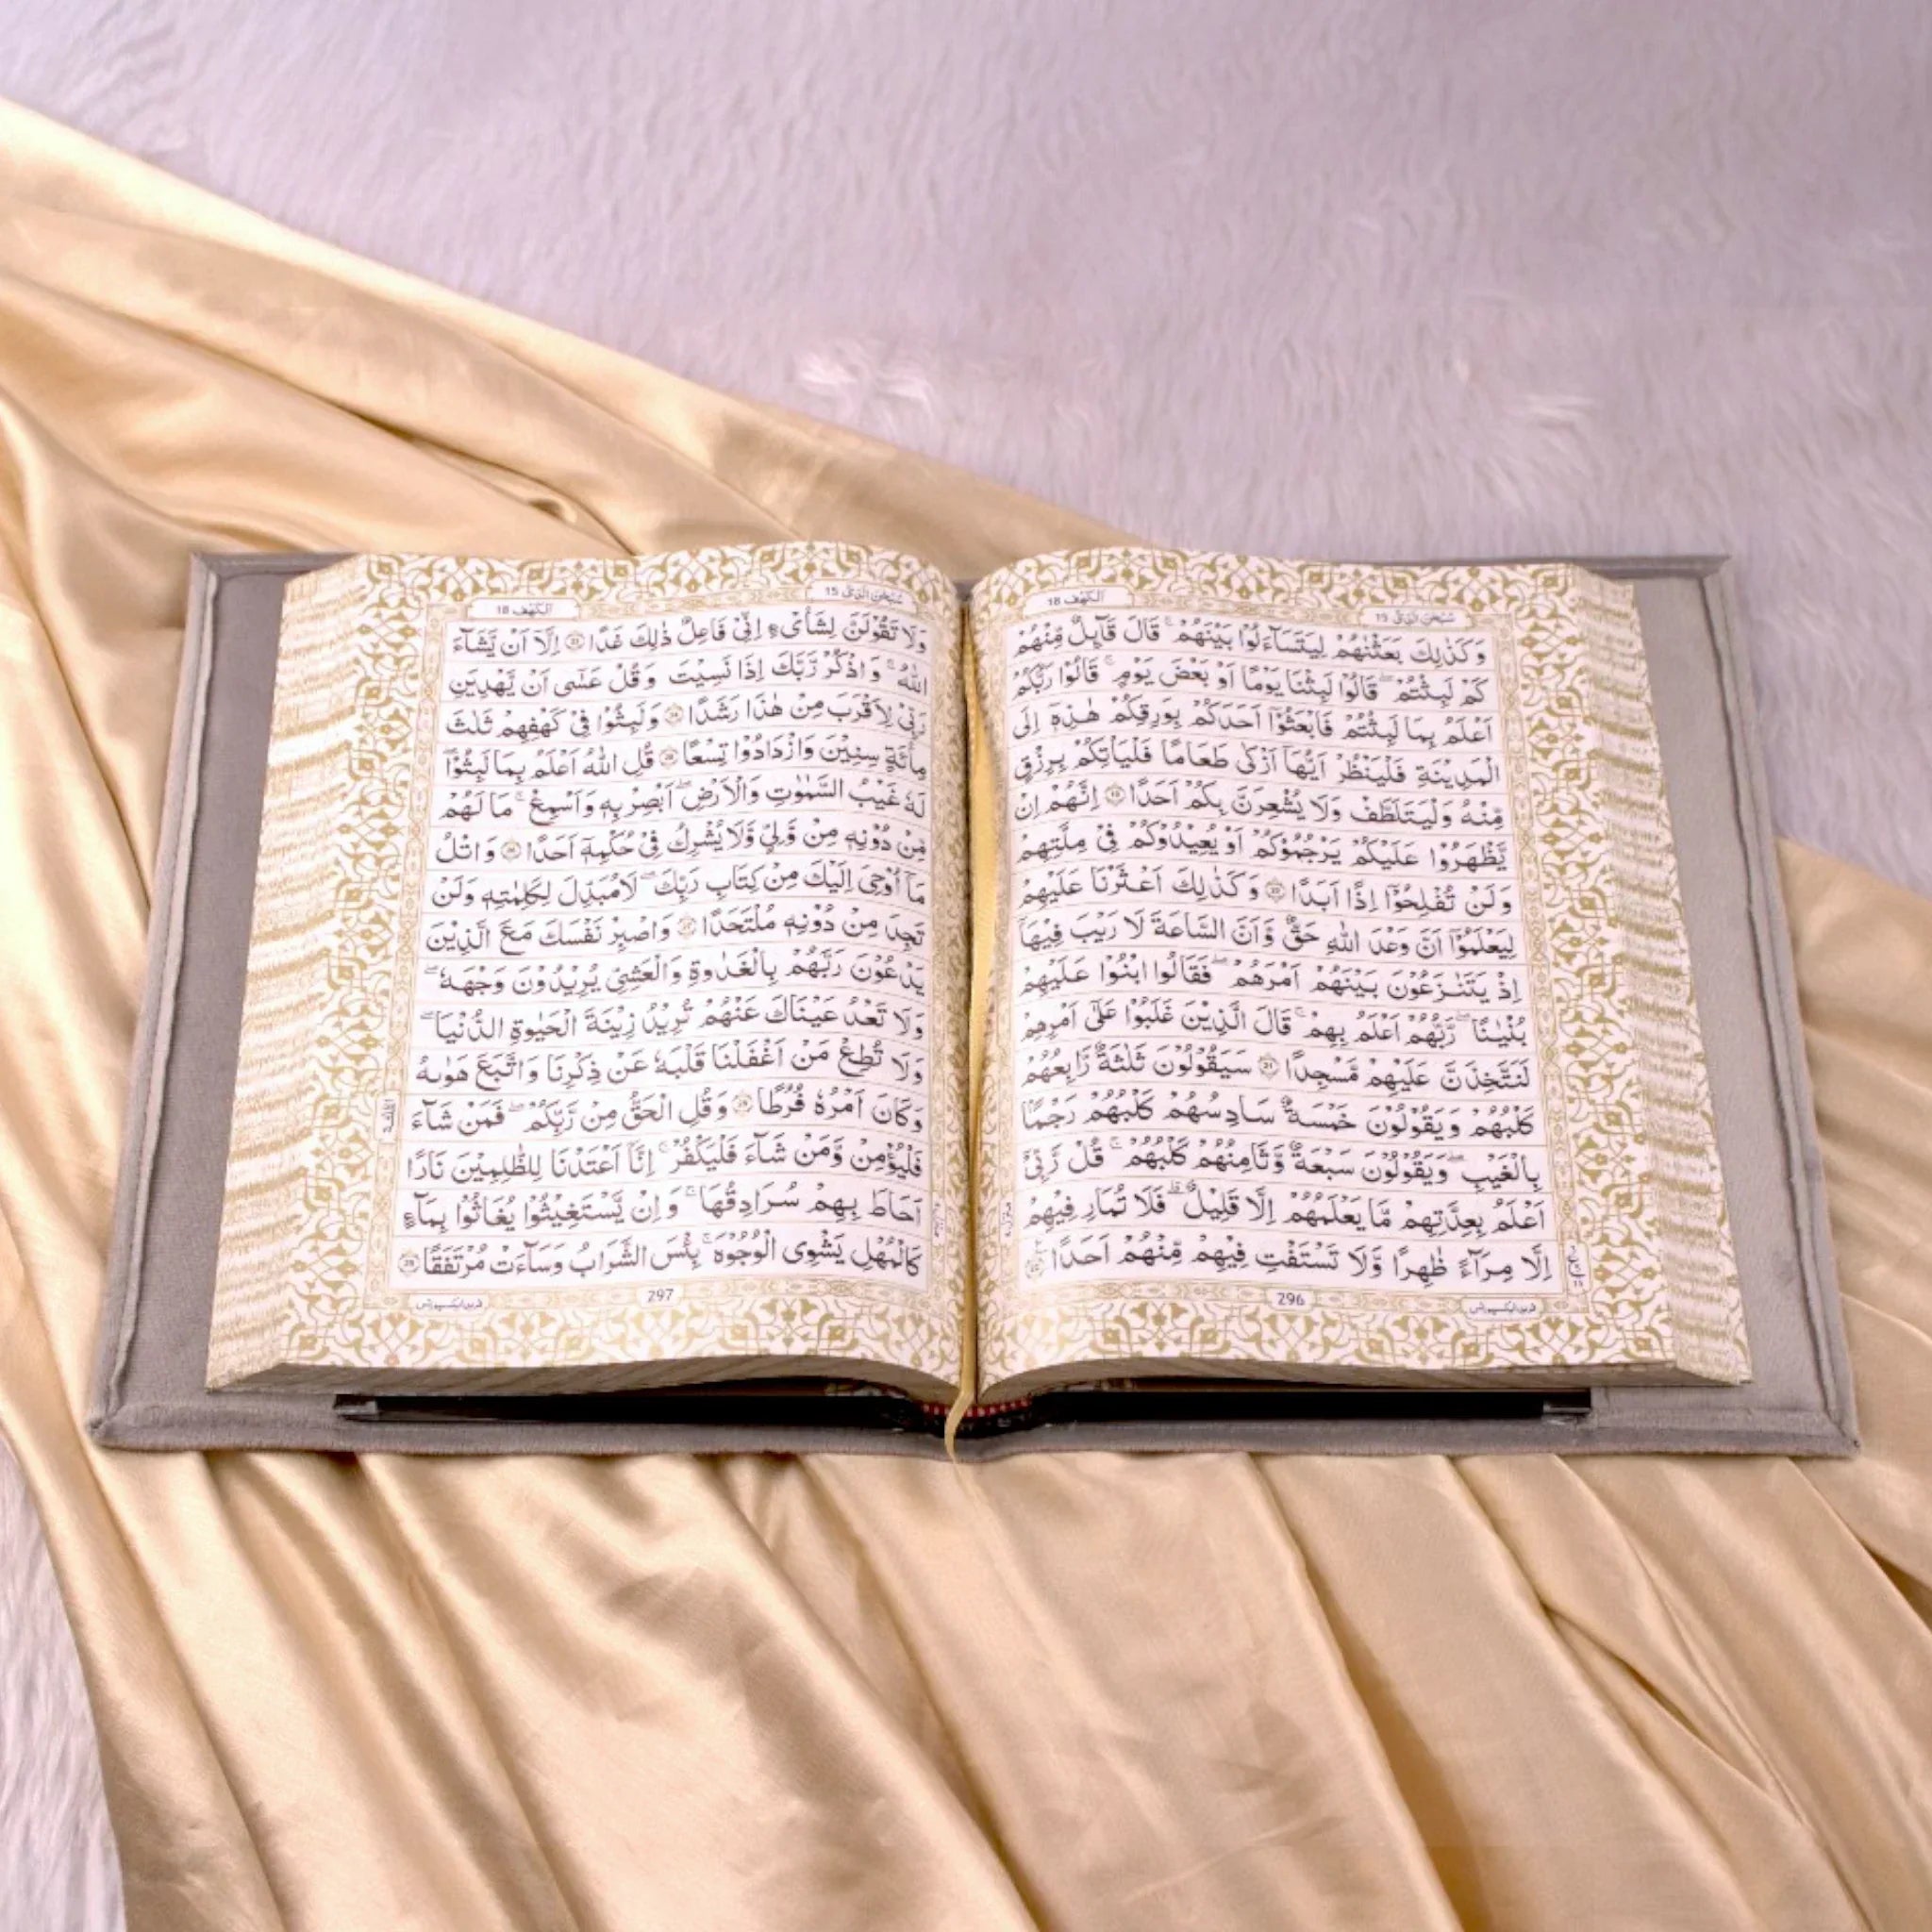 الكهف 18
سبحن الذى 15
وَكَذٰلِكَ بَعَثْنٰهُمْ لِيَتَسَآءَلُوْا بَيْنَهُمْ ؕ قَالَ قَآئِلٌ مِّنْهُمْ
كَمْ لَبِثْتُمْ ؕ قَالُوْا لَبِثْنَا يَوْمًا اَوْ بَعْضَ يَوْمٍ ؕ قَالُوْا رَبُّكُمْ
اَعْلَمُ بِمَا لَبِثْتُمْ فَابْعَثُوْۤا اَحَدَكُمْ بِوَرِقِكُمْ هٰذِهٖۤ اِلَى
الْمَدِيْنَةِ فَلْيَنْظُرْ اَيُّهَاۤ اَزْكٰى طَعَامًا فَلْيَاْتِكُمْ بِرِزْقٍ
مِّنْهُ وَلْيَتَلَطَّفْ وَلَا يُشْعِرَنَّ بِكُمْ اَحَدًا ۝١٩ اِنَّهُمْ اِنْ
يَّظْهَرُوْا عَلَيْكُمْ يَرْجُمُوْكُمْ اَوْ يُعِيْدُوْكُمْ فِيْ مِلَّتِهِمْ
وَلَنْ تُفْلِحُوْۤا اِذًا اَبَدًا ۝٢٠ وَكَذٰلِكَ اَعْثَرْنَا عَلَيْهِمْ
لِيَعْلَمُوْۤا اَنَّ وَعْدَ اللّٰهِ حَقٌّ وَّاَنَّ السَّاعَةَ لَا رَيْبَ فِيْهَا
اِذْ يَتَنَازَعُوْنَ بَيْنَهُمْ اَمْرَهُمْ فَقَالُوا ابْنُوْا عَلَيْهِمْ
بُنْيَانًا ؕ رَبُّهُمْ اَعْلَمُ بِهِمْ ؕ قَالَ الَّذِيْنَ غَلَبُوْا عَلٰۤى اَمْرِهِمْ
لَنَتَّخِذَنَّ عَلَيْهِمْ مَّسْجِدًا ۝٢١ سَيَقُوْلُوْنَ ثَلٰثَةٌ رَّابِعُهُمْ
كَلْبُهُمْ وَيَقُوْلُوْنَ خَمْسَةٌ سَادِسُهُمْ كَلْبُهُمْ رَجْمًا
بِالْغَيْبِ ۚ وَيَقُوْلُوْنَ سَبْعَةٌ وَّثَامِنُهُمْ كَلْبُهُمْ ؕ قُلْ رَّبِّيْۤ
اَعْلَمُ بِعِدَّتِهِمْ مَّا يَعْلَمُهُمْ اِلَّا قَلِيْلٌ ۫ فَلَا تُمَارِ فِيْهِمْ
اِلَّا مِرَآءً ظَاهِرًا وَّلَا تَسْتَفْتِ فِيْهِمْ مِّنْهُمْ اَحَدًا ۝٢٢
296
سبحن الذى 15
الكهف 18
وَلَا تَقُوْلَنَّ لِشَايْءٍ اِنِّيْ فَاعِلٌ ذٰلِكَ غَدًا ۝٢٣ اِلَّاۤ اَنْ يَّشَآءَ
اللّٰهُ ؗ وَاذْكُرْ رَّبَّكَ اِذَا نَسِيْتَ وَقُلْ عَسٰۤى اَنْ يَّهْدِيَنِ
رَبِّيْ لِاَقْرَبَ مِنْ هٰذَا رَشَدًا ۝٢٤ وَلَبِثُوْا فِيْ كَهْفِهِمْ ثَلٰثَ
مِائَةٍ سِنِيْنَ وَازْدَادُوْا تِسْعًا ۝٢٥ قُلِ اللّٰهُ اَعْلَمُ بِمَا لَبِثُوْا
لَهٗ غَيْبُ السَّمٰوٰتِ وَالْاَرْضِ ؕ اَبْصِرْ بِهٖ وَاَسْمِعْ ؕ مَا لَهُمْ
مِّنْ دُوْنِهٖ مِنْ وَّلِيٍّ وَّلَا يُشْرِكُ فِيْ حُكْمِهٖۤ اَحَدًا ۝٢٦ وَاتْلُ
مَاۤ اُوْحِيَ اِلَيْكَ مِنْ كِتَابِ رَبِّكَ ؕ لَا مُبَدِّلَ لِكَلِمٰتِهٖ وَلَنْ
تَجِدَ مِنْ دُوْنِهٖ مُلْتَحَدًا ۝٢٧ وَاصْبِرْ نَفْسَكَ مَعَ الَّذِيْنَ
يَدْعُوْنَ رَبَّهُمْ بِالْغَدٰوةِ وَالْعَشِيِّ يُرِيْدُوْنَ وَجْهَهٗ
وَلَا تَعْدُ عَيْنَاكَ عَنْهُمْ تُرِيْدُ زِيْنَةَ الْحَيٰوةِ الدُّنْيَا
وَلَا تُطِعْ مَنْ اَغْفَلْنَا قَلْبَهٗ عَنْ ذِكْرِنَا وَاتَّبَعَ هَوٰىهُ
وَكَانَ اَمْرُهٗ فُرُطًا ۝٢٨ وَقُلِ الْحَقُّ مِنْ رَّبِّكُمْ فَمَنْ شَآءَ
فَلْيُؤْمِنْ وَّمَنْ شَآءَ فَلْيَكْفُرْ ۙ اِنَّاۤ اَعْتَدْنَا لِلظّٰلِمِيْنَ نَارًا
اَحَاطَ بِهِمْ سُرَادِقُهَا ؕ وَاِنْ يَّسْتَغِيْثُوْا يُغَاثُوْا بِمَآءٍ
كَالْمُهْلِ يَشْوِي الْوُجُوْهَ ؕ بِئْسَ الشَّرَابُ وَسَآءَتْ مُرْتَفَقًا ۝٢٩
297